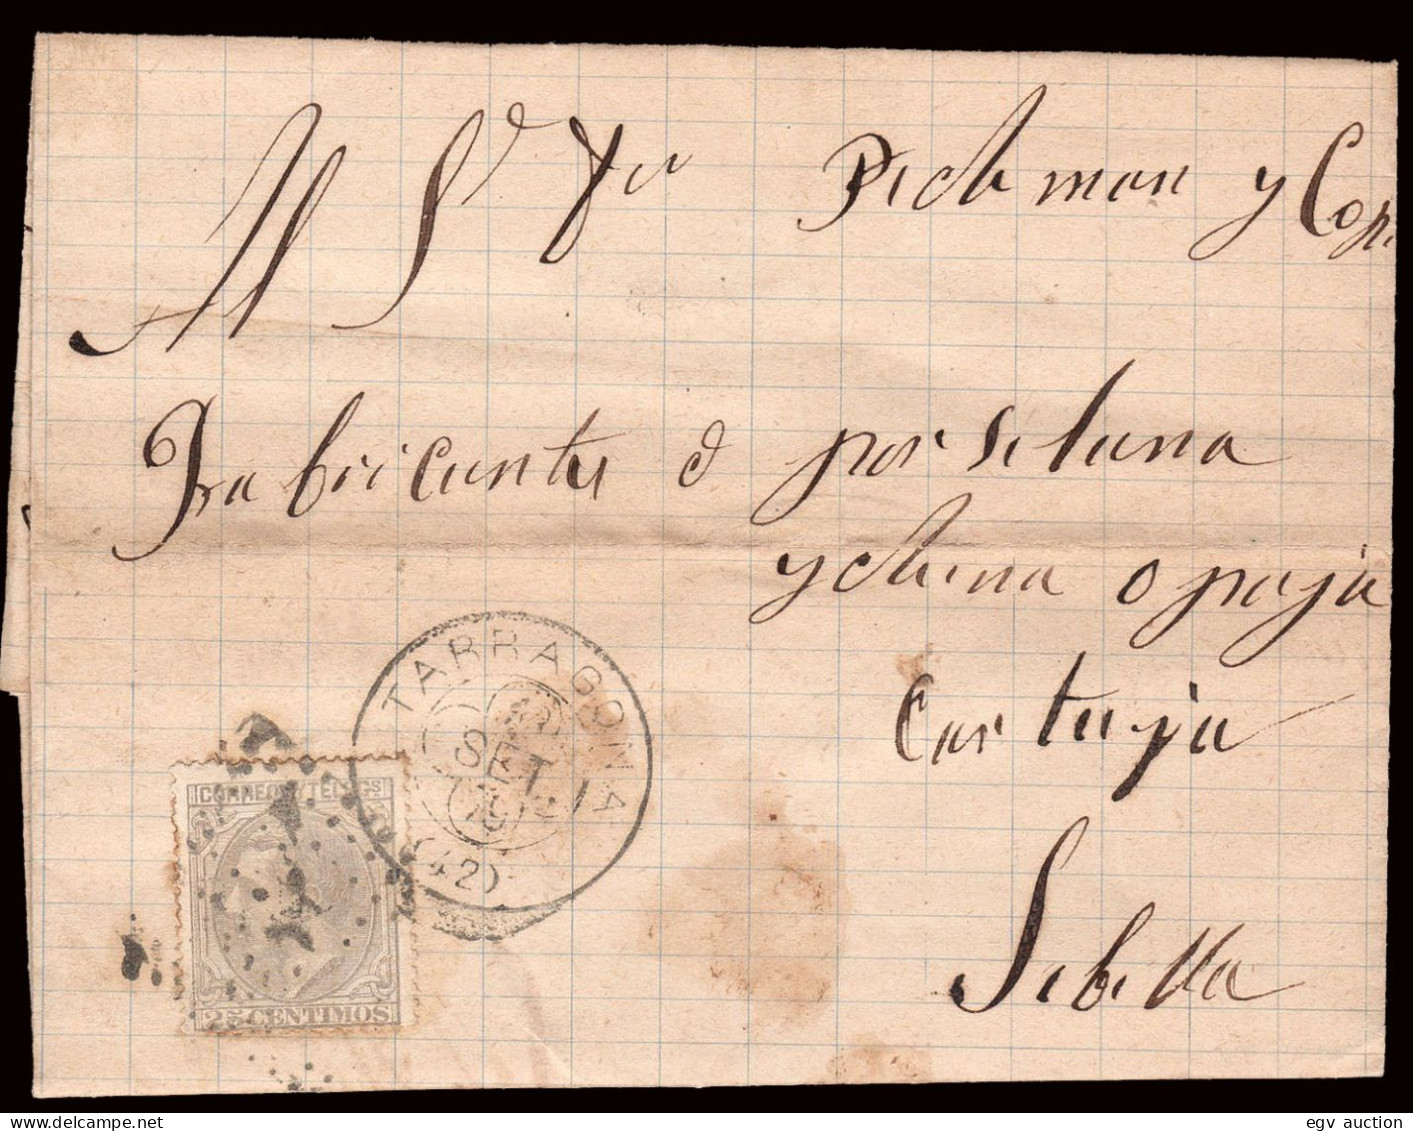 Al Sr Dn Pickman y Cop.
Fabricante d porselana
y china opaja
Cartuja
Sebilla
TARRAGONA
SET
(42)
CORREOS Y TELEGS
25 CENTIMOS
egv auction